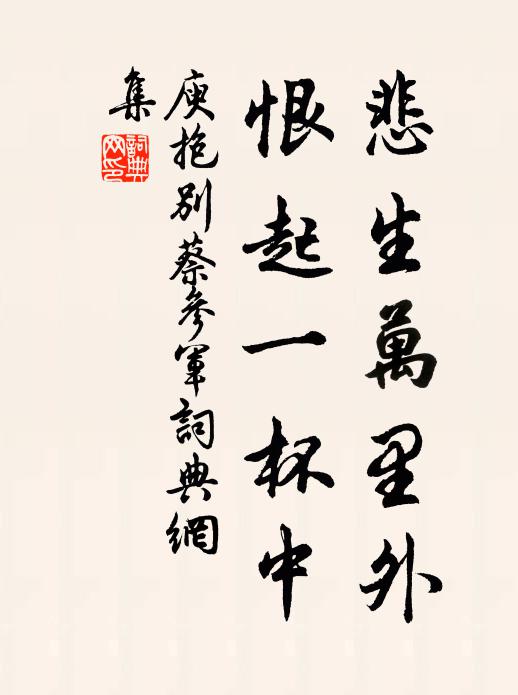 悲生萬里外
恨起一杯中
庾抱別蔡參軍詞典網
集
詞典
網印